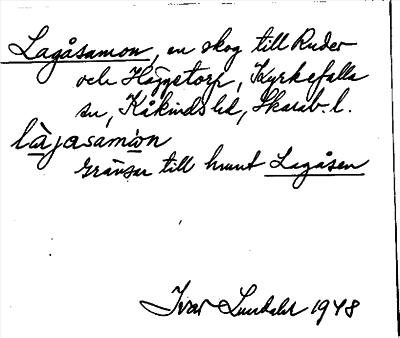 Lagåsamon, en skog till Ruder
och Häggetorp, Kyrkefalla
sn, Kåkinds hd, Skarab. l.
làjasamòn
Gränsar till hmnt Lagåsen
Ivar Lundahl 1948